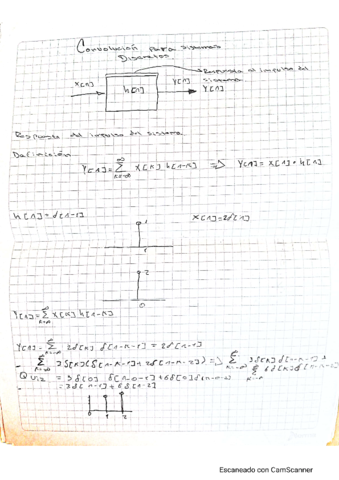 Convolución para sistemas
Discretos.
Respuesta al impulso del
sistema
X[n]
h[n]
Y[n]
Y[n]
Respuesta del impulso del sistema
Definición
Y[n]=∑ X[n] h[n-n] => Y[n] = X[n] * h[n]
h[n]=δ[n-1]
X[n]=2δ[n]
1
1
2
0
Y[n]=∑ X[n] h[n-n]
Y[n]= ∑ 2δ[n] δ[n-1] = 2δ[n-1]
∑ 3δ[n](δ[n-n-1]+2δ[n-n-2]) => ∑ 3δ[n] δ[n-n-1] +
∑ 6δ[n]δ[n-n-2]
Quiz = 3δ[0] δ[n-0-1]+6δ[0]δ[n-0-2]
=3δ[n-1]+6δ[n-2]
Escaneado con CamScanner